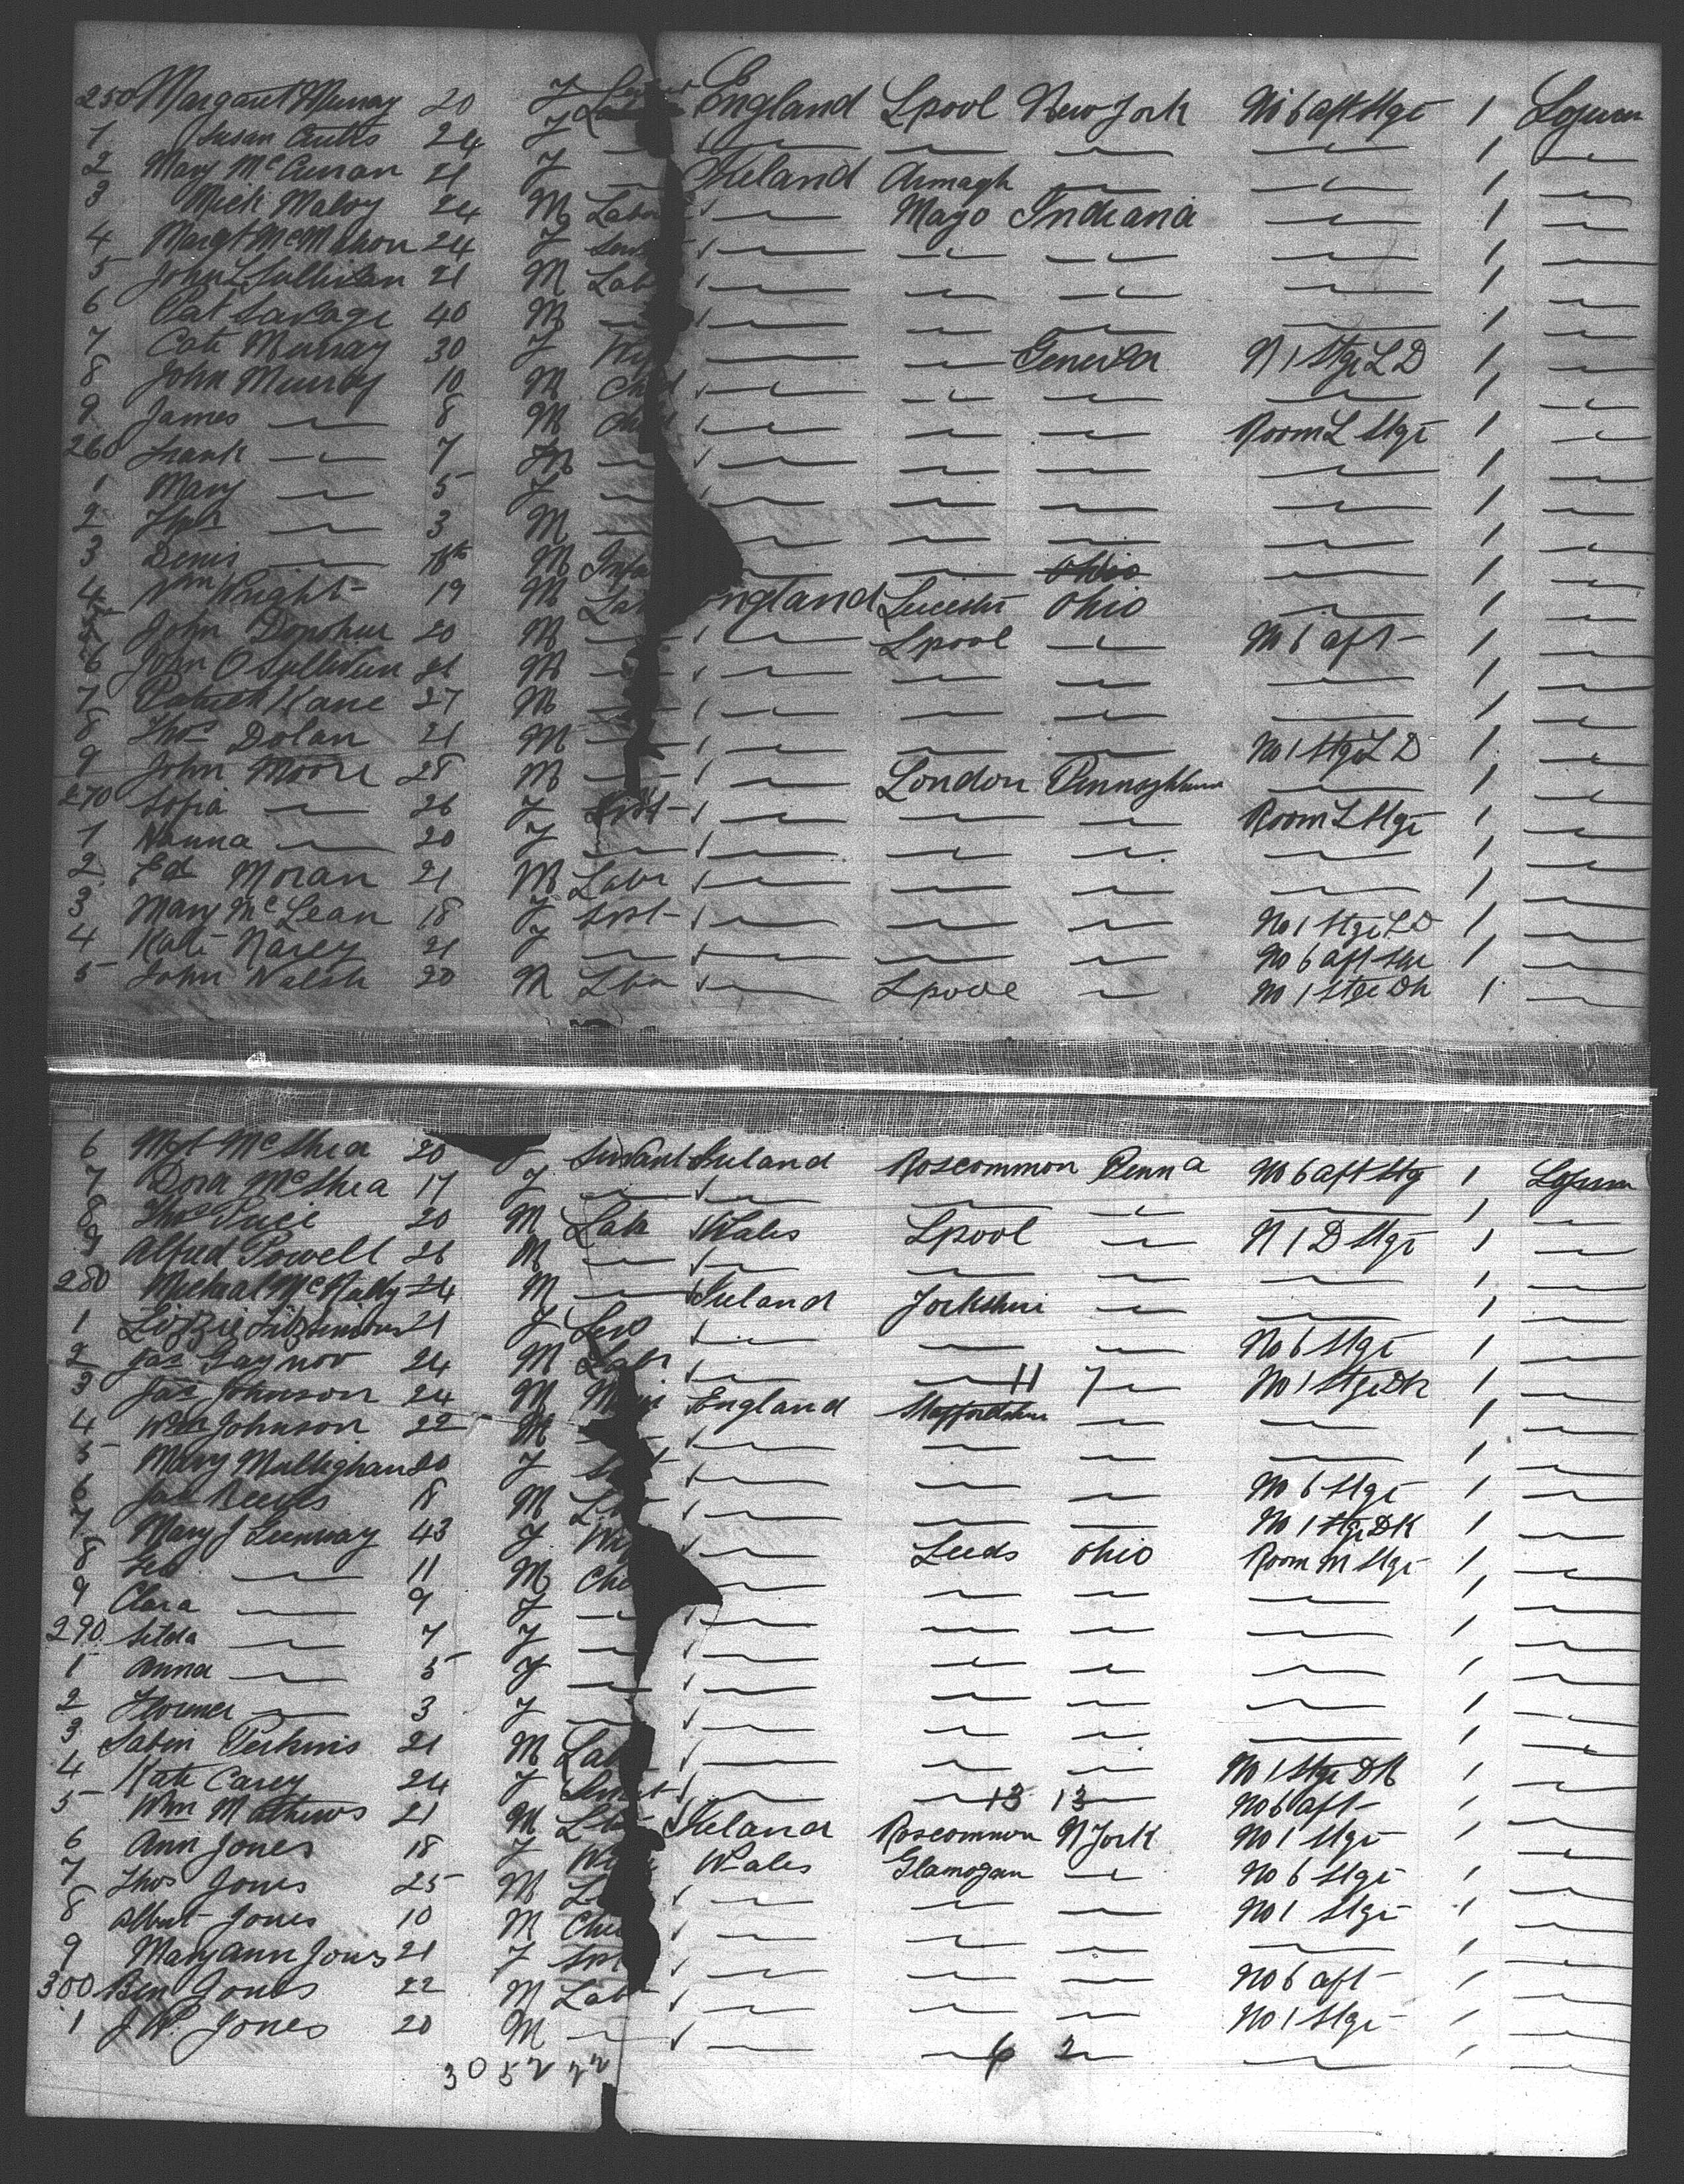 250 Margaret Murray 20 F England Lpool New York No 6 aft Stge 1 
1 Susan 24 F — — — — 1 —
2 Mary McCurran 21 F — Ireland Armagh — — 1 —
3 Mick Maloy 24 M Labr — Mayo Indiana — 1 —
4 Margt McMahon 24 F — — — — 1 —
5 John L Sullivan 21 M Lab — — — — 1 —
6 Pat Savage 40 M — — — — — 1 —
7 Cate Murray 30 F Wif — — Geneva N 1 Stge L D 1 —
8 John Murray 10 M Child — — — — 1 —
9 James — 8 M — — — Room L Stge 1 —
260 Frank — 7 M — — — — — 1 —
1 Mary — 5 F — — — — — 1 —
2 — 3 M — — — — — 1 —
3 Denis — M Infa — — Ohio — 1 —
4 Wm Wright 19 M Lab England Leicester Ohio — 1 —
5 John Donohue 20 M — — Lpool — No 6 aft 1 —
6 John O Sullivan 21 M — — — — — 1 —
7 Patrick Kane 27 M — — — — — 1 —
8 Thos Dolan 21 M — — — — No 1 Stge L D 1 —
9 John Moore 28 M — — London Pennsylvania — 1 —
270 Sofia — 26 F — — — Room L Stge 1 —
1 Hanna — 20 F — — — — — 1 —
2 Ed Moran 21 M Labr — — — — 1 —
3 Mary McLean 18 F Srvt — — — No 1 Stge L D 1 —
4 Kate Narey 21 F — — — — No 6 aft 1 —
5 John Walsh 20 M — Lpool — No 1 Stge Dk 1 —
6 Mgt McShea 20 F Servant Ireland Roscommon Penna No 6 aft Stg 1 
7 Dora McShea 17 F — — — — — 1 —
8 Thos Price 20 M Lab Wales Lpool — N 1 D Stge 1 —
9 Alfred Powell 26 M — — — — — 1 —
280 Micheal McNally 24 M — Ireland Yorkshire — — 1 —
1 Lizzie Fitzsimons 21 F Serv — — — No 6 Stge 1 —
2 Jas Gaynor 24 M Labr — — 11 7 — No 1 Stge Dk 1 —
3 Jas Johnson 24 M England Staffordshire — — 1 —
4 Wm Johnson 22 M — — — — — 1 —
5 Mary Mullighan 20 F — — — No 6 Stge 1 —
6 Jas Reeves 18 M — — — No 1 Stge DK 1 —
7 Mary J 43 F — Leeds Ohio Room M Stge 1 —
8 Geo — 11 M Chi — — — — 1 —
9 Clara — 9 F — — — — — 1 —
290 — 7 F — — — — — 1 —
1 Anna — 5 F — — — — — 1 —
2 — 3 F — — — — — 1 —
3 Perkins 21 M Lab — — — No 1 Stge DK 1 —
4 Kate Carey 24 F — — 13 13 — No 6 aft 1 —
5 Wm Mathews 21 M Ireland Roscommon N York No 1 Stge 1 —
6 Ann Jones 18 F Wales Glamogan — No 6 Stge 1 —
7 Thos Jones 25 M — — — No 1 Stge 1 —
8 Albert Jones 10 M Chi — — — — 1 —
9 Mary Ann Jones 21 F — — — No 6 aft 1 —
300 Ben Jones 22 M Lab — — — No 1 Stge 1 —
1 J. W. Jones 20 M — — — 6 2 — — 1 —
30 52 22